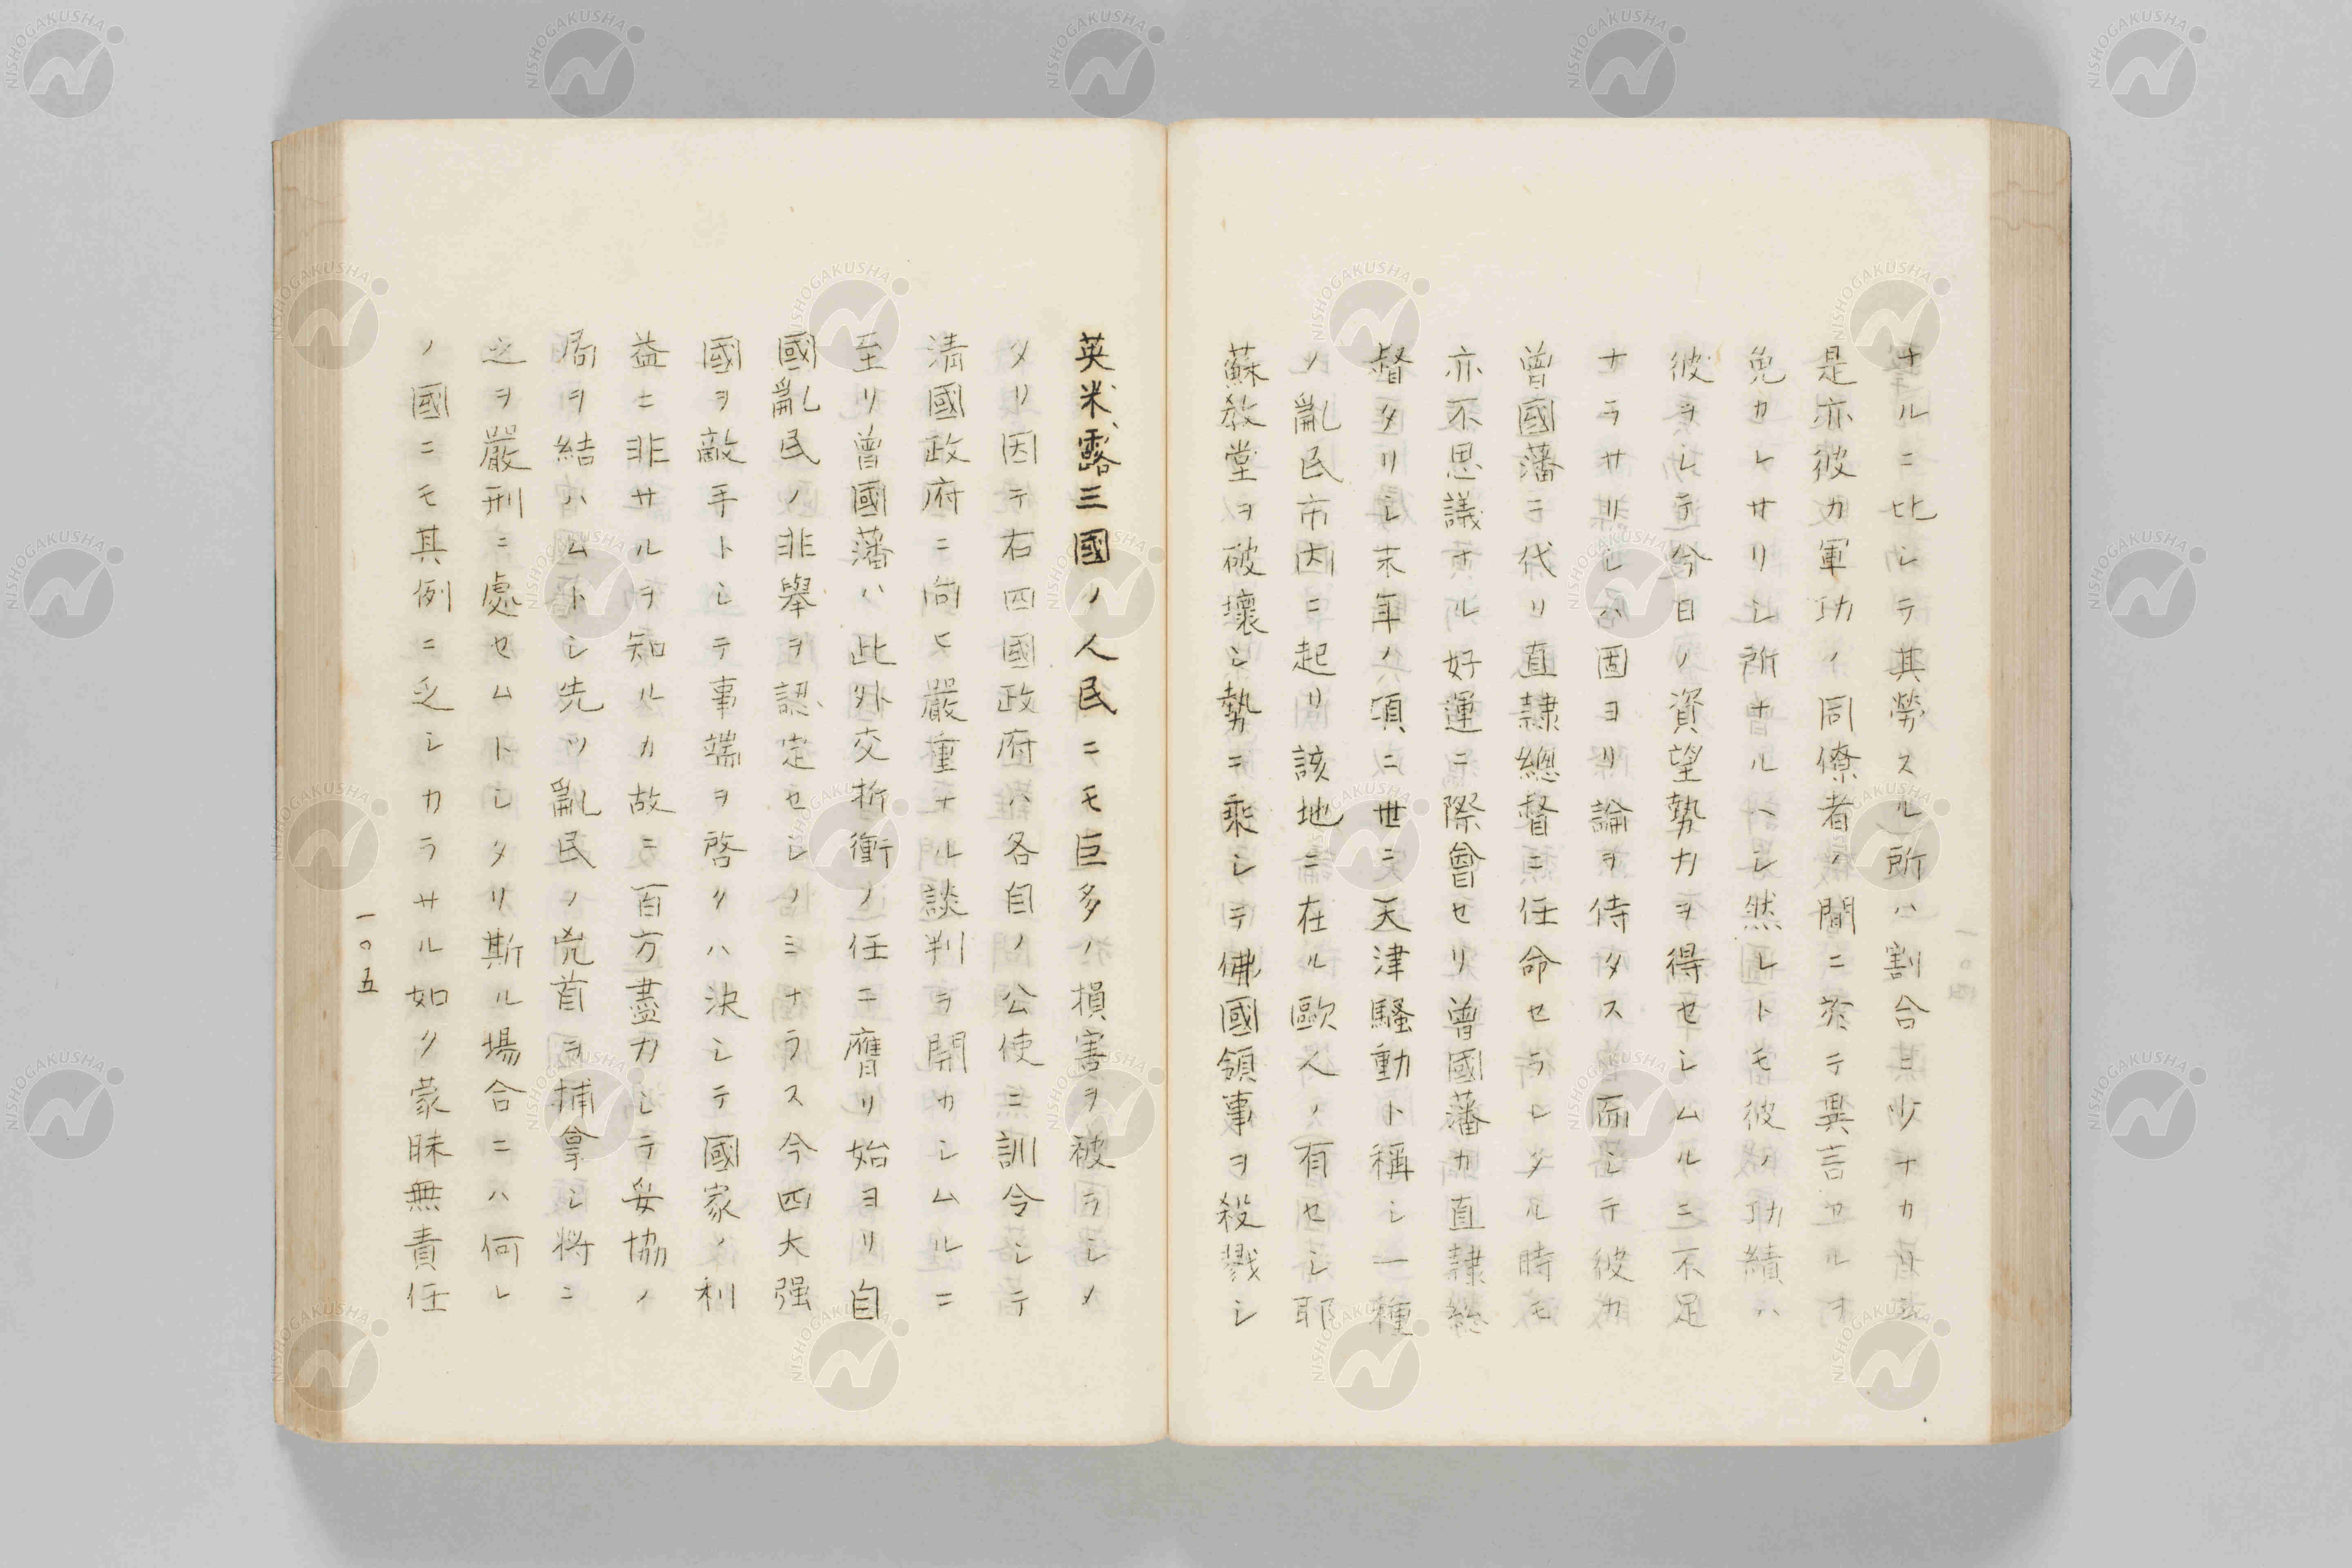 ナルニ比シテ其勞スル所ハ割合ニ少ナカリシ
是亦彼カ軍功ノ同僚者ノ間ニ於テ異言アルヲ
免カレサリシ所ナルヘシ然レトモ彼ノ功績ハ
彼ヲシテ今日ノ資望勢力ヲ得セシムルニ不足
ナラサリシハ固ヨリ論ヲ待タス而シテ彼カ
曾國藩ニ代リ直隷總督ニ任命セラレタル時モ
亦不思議ナル好運ニ際會セリ曾國藩カ直隷總
督タリシ末年ノ頃ニ世ニ天津騷動ト稱シ一種
ノ亂民市内ニ起リ該地ニ在ル歐人ノ有セシ耶
蘇教堂ヲ破壞シ勢ニ乘シテ佛國領事ヲ殺戮シ
英、米、露三國ノ人民ニモ巨多ノ損害ヲ被ラシメ
タリ因テ右四國政府ハ各自ノ公使ニ訓令シテ
清國政府ニ向ヒ嚴重ナル談判ヲ開カシムルニ
至リ曾國藩ハ此外交折衝ノ任ニ膺リ始ヨリ自
國亂民ノ非擧ヲ認定セシノミナラス今四大强
國ヲ敵手トシテ事端ヲ啓クハ決シテ國家ノ利
益ニ非サルヲ知ルカ故ニ百方盡力シテ妥協ノ
局ヲ結ハムトシ先ツ亂民ノ兇首ヲ捕拿シ將ニ
之ヲ嚴刑ニ處セムトシタリ斯ル場合ニハ何レ
ノ國ニモ其例ニ乏シカラサル如ク蒙昧無責任
一〇五
NISHOGAKUSHA